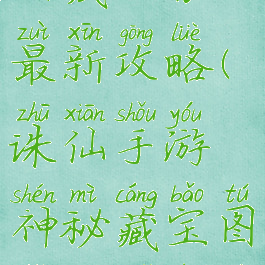 zuì xīn gōng lüè
最新攻略(
zhū xiān shǒu yóu
诛仙手游
shén mì cáng bǎo tú
神秘藏宝图